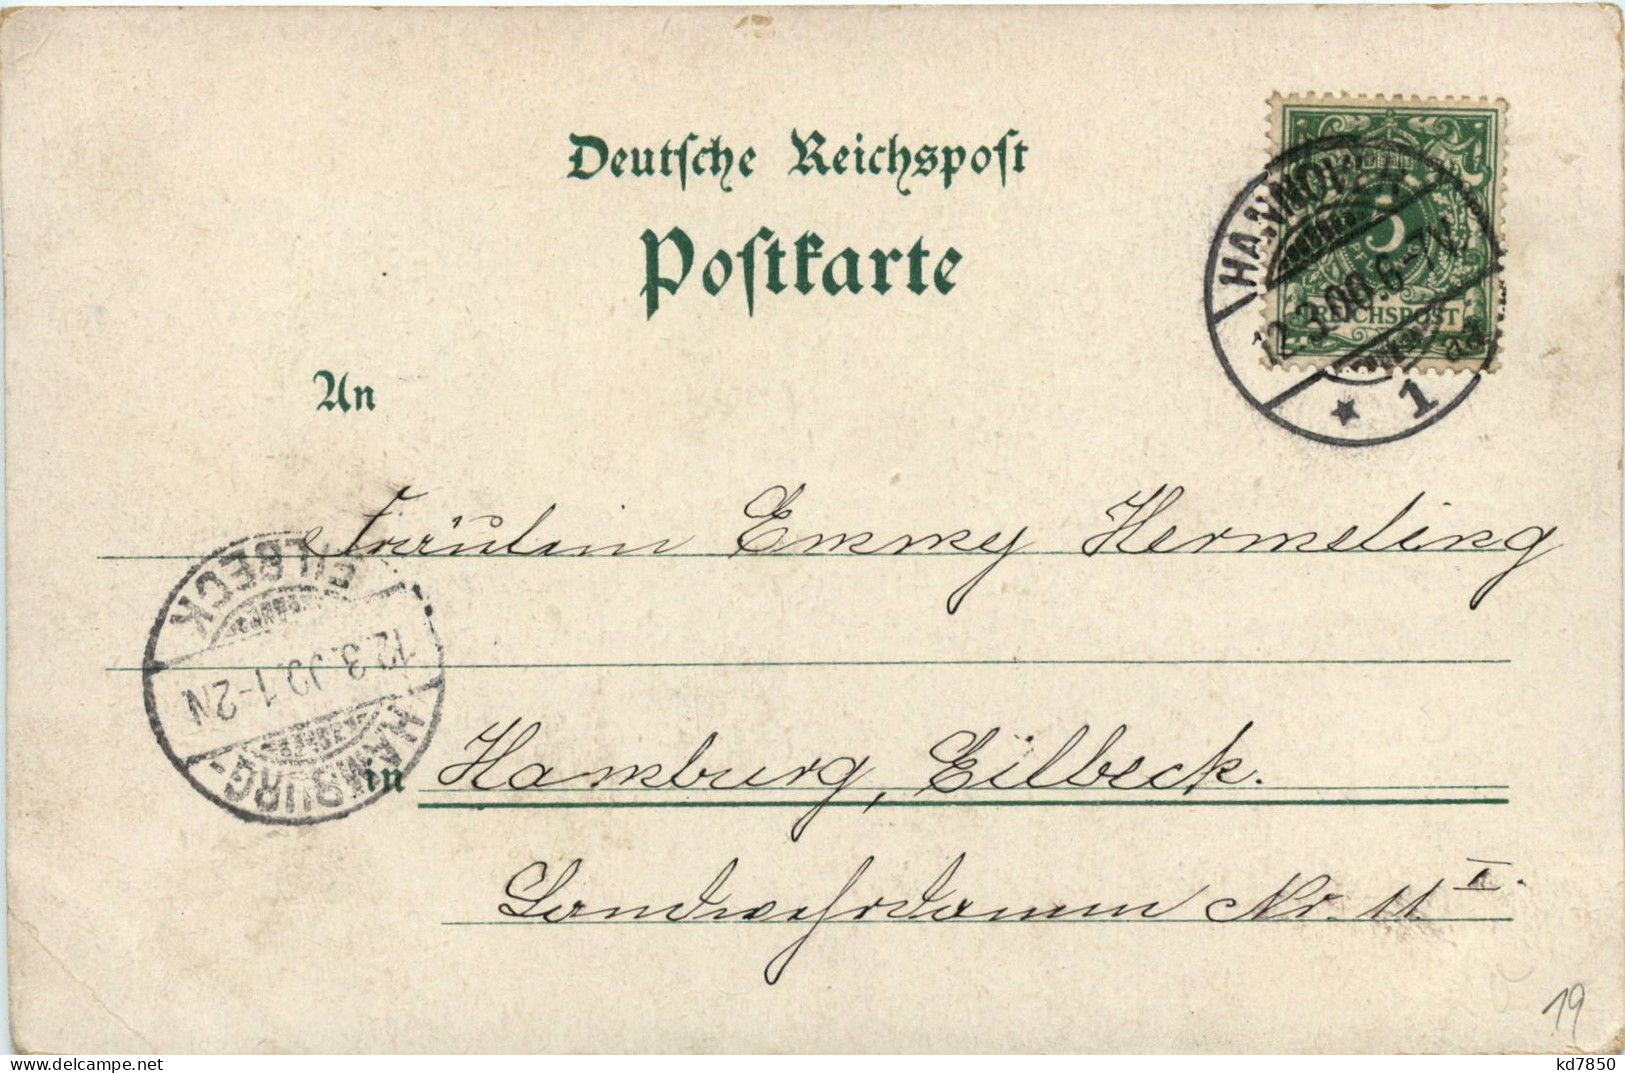 Deutsche Reichspost
Postkarte
HANNOVER
12.3.00.6-7V.
1
5
REICHSPOST
An
Fräulein Emmy Hermeling
EILBECK
12.3.00.1-2N
HAMBURG-
in Hamburg, Eilbeck.
Landwehrdamm Nr. 11 I.
19
www.delcampe.net
kd7850